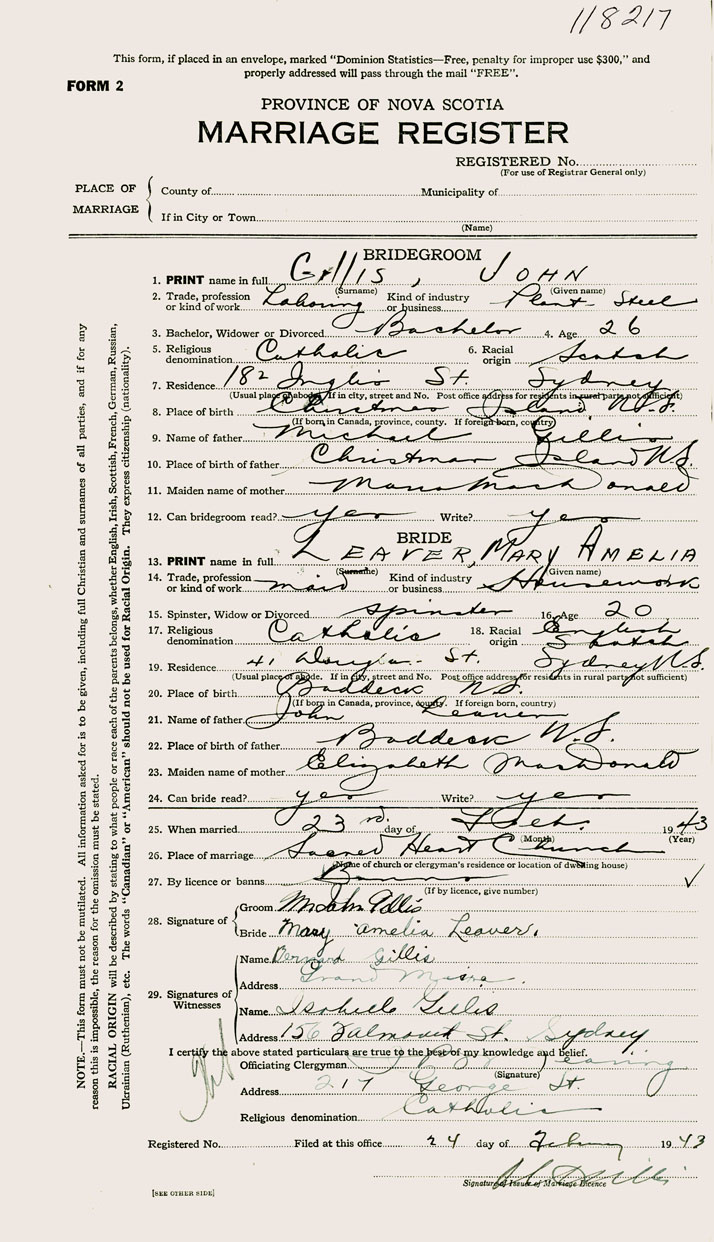 118217
This form, if placed in an envelope, marked "Dominion Statistics—Free, penalty for improper use $300," and
properly addressed will pass through the mail "FREE".
FORM 2
PROVINCE OF NOVA SCOTIA
MARRIAGE REGISTER
REGISTERED No.
(For use of Registrar General only)
PLACE OF MARRIAGE
County of Municipality of
If in City or Town
(Name)
BRIDEGROOM
1. PRINT name in full Gillis, JOHN
(Surname) (Given name)
2. Trade, profession or kind of work Laboring Kind of industry or business Plant - Steel
3. Bachelor, Widower or Divorced Bachelor 4. Age 26
5. Religious denomination Catholic 6. Racial origin Scotch
7. Residence 182 Inglis St. Sydney
(Usual place of abode. If in city, street and No. Post office address for residents in rural parts not sufficient)
8. Place of birth Christmas Island N.S.
(If born in Canada, province, county. If foreign born, country)
9. Name of father Michael Gillis
10. Place of birth of father Christmas Island N.S.
11. Maiden name of mother MacDonald
12. Can bridegroom read? yes Write? yes
BRIDE
13. PRINT name in full LEAVER, MARY AMELIA
(Surname) (Given name)
14. Trade, profession or kind of work maid Kind of industry or business Housework
15. Spinster, Widow or Divorced spinster 16. Age 20
17. Religious denomination Catholic 18. Racial origin English Scotch
19. Residence 41 Douglas St. Sydney N.S.
(Usual place of abode. If in city, street and No. Post office address for residents in rural parts not sufficient)
20. Place of birth Baddeck N.S.
(If born in Canada, province, county. If foreign born, country)
21. Name of father John Leaver
22. Place of birth of father Baddeck N.S.
23. Maiden name of mother Elizabeth MacDonald
24. Can bride read? yes Write? yes
25. When married 23rd. day of Feb. 1943
(Month) (Year)
26. Place of marriage Sacred Heart Church
(Name of church or clergyman's residence or location of dwelling house)
27. By licence or banns Banns
(If by licence, give number)
28. Signature of
Groom John Gillis
Bride Mary Amelia Leaver.
29. Signatures of Witnesses
Name Bernard Gillis
Address Grand Mira
Name Isabelle Gillis
Address 156 St. Sydney
I certify the above stated particulars are true to the best of my knowledge and belief.
Officiating Clergyman
(Signature)
Address 217 George St.
Religious denomination Catholic
Registered No. Filed at this office 24 day of 1943
Signature of Issuer of Marriage Licence
[SEE OTHER SIDE]
NOTE.—This form must not be mutilated. All information asked for is to be given, including full Christian and surnames of all parties, and if for any
reason this is impossible, the reason for the omission must be stated.
RACIAL ORIGIN will be described by stating to what people or race each of the parents belongs, whether English, Irish, Scottish, French, German, Russian,
Ukrainian (Ruthenian), etc. The words "Canadian" or "American" should not be used for Racial Origin. They express citizenship (nationality).